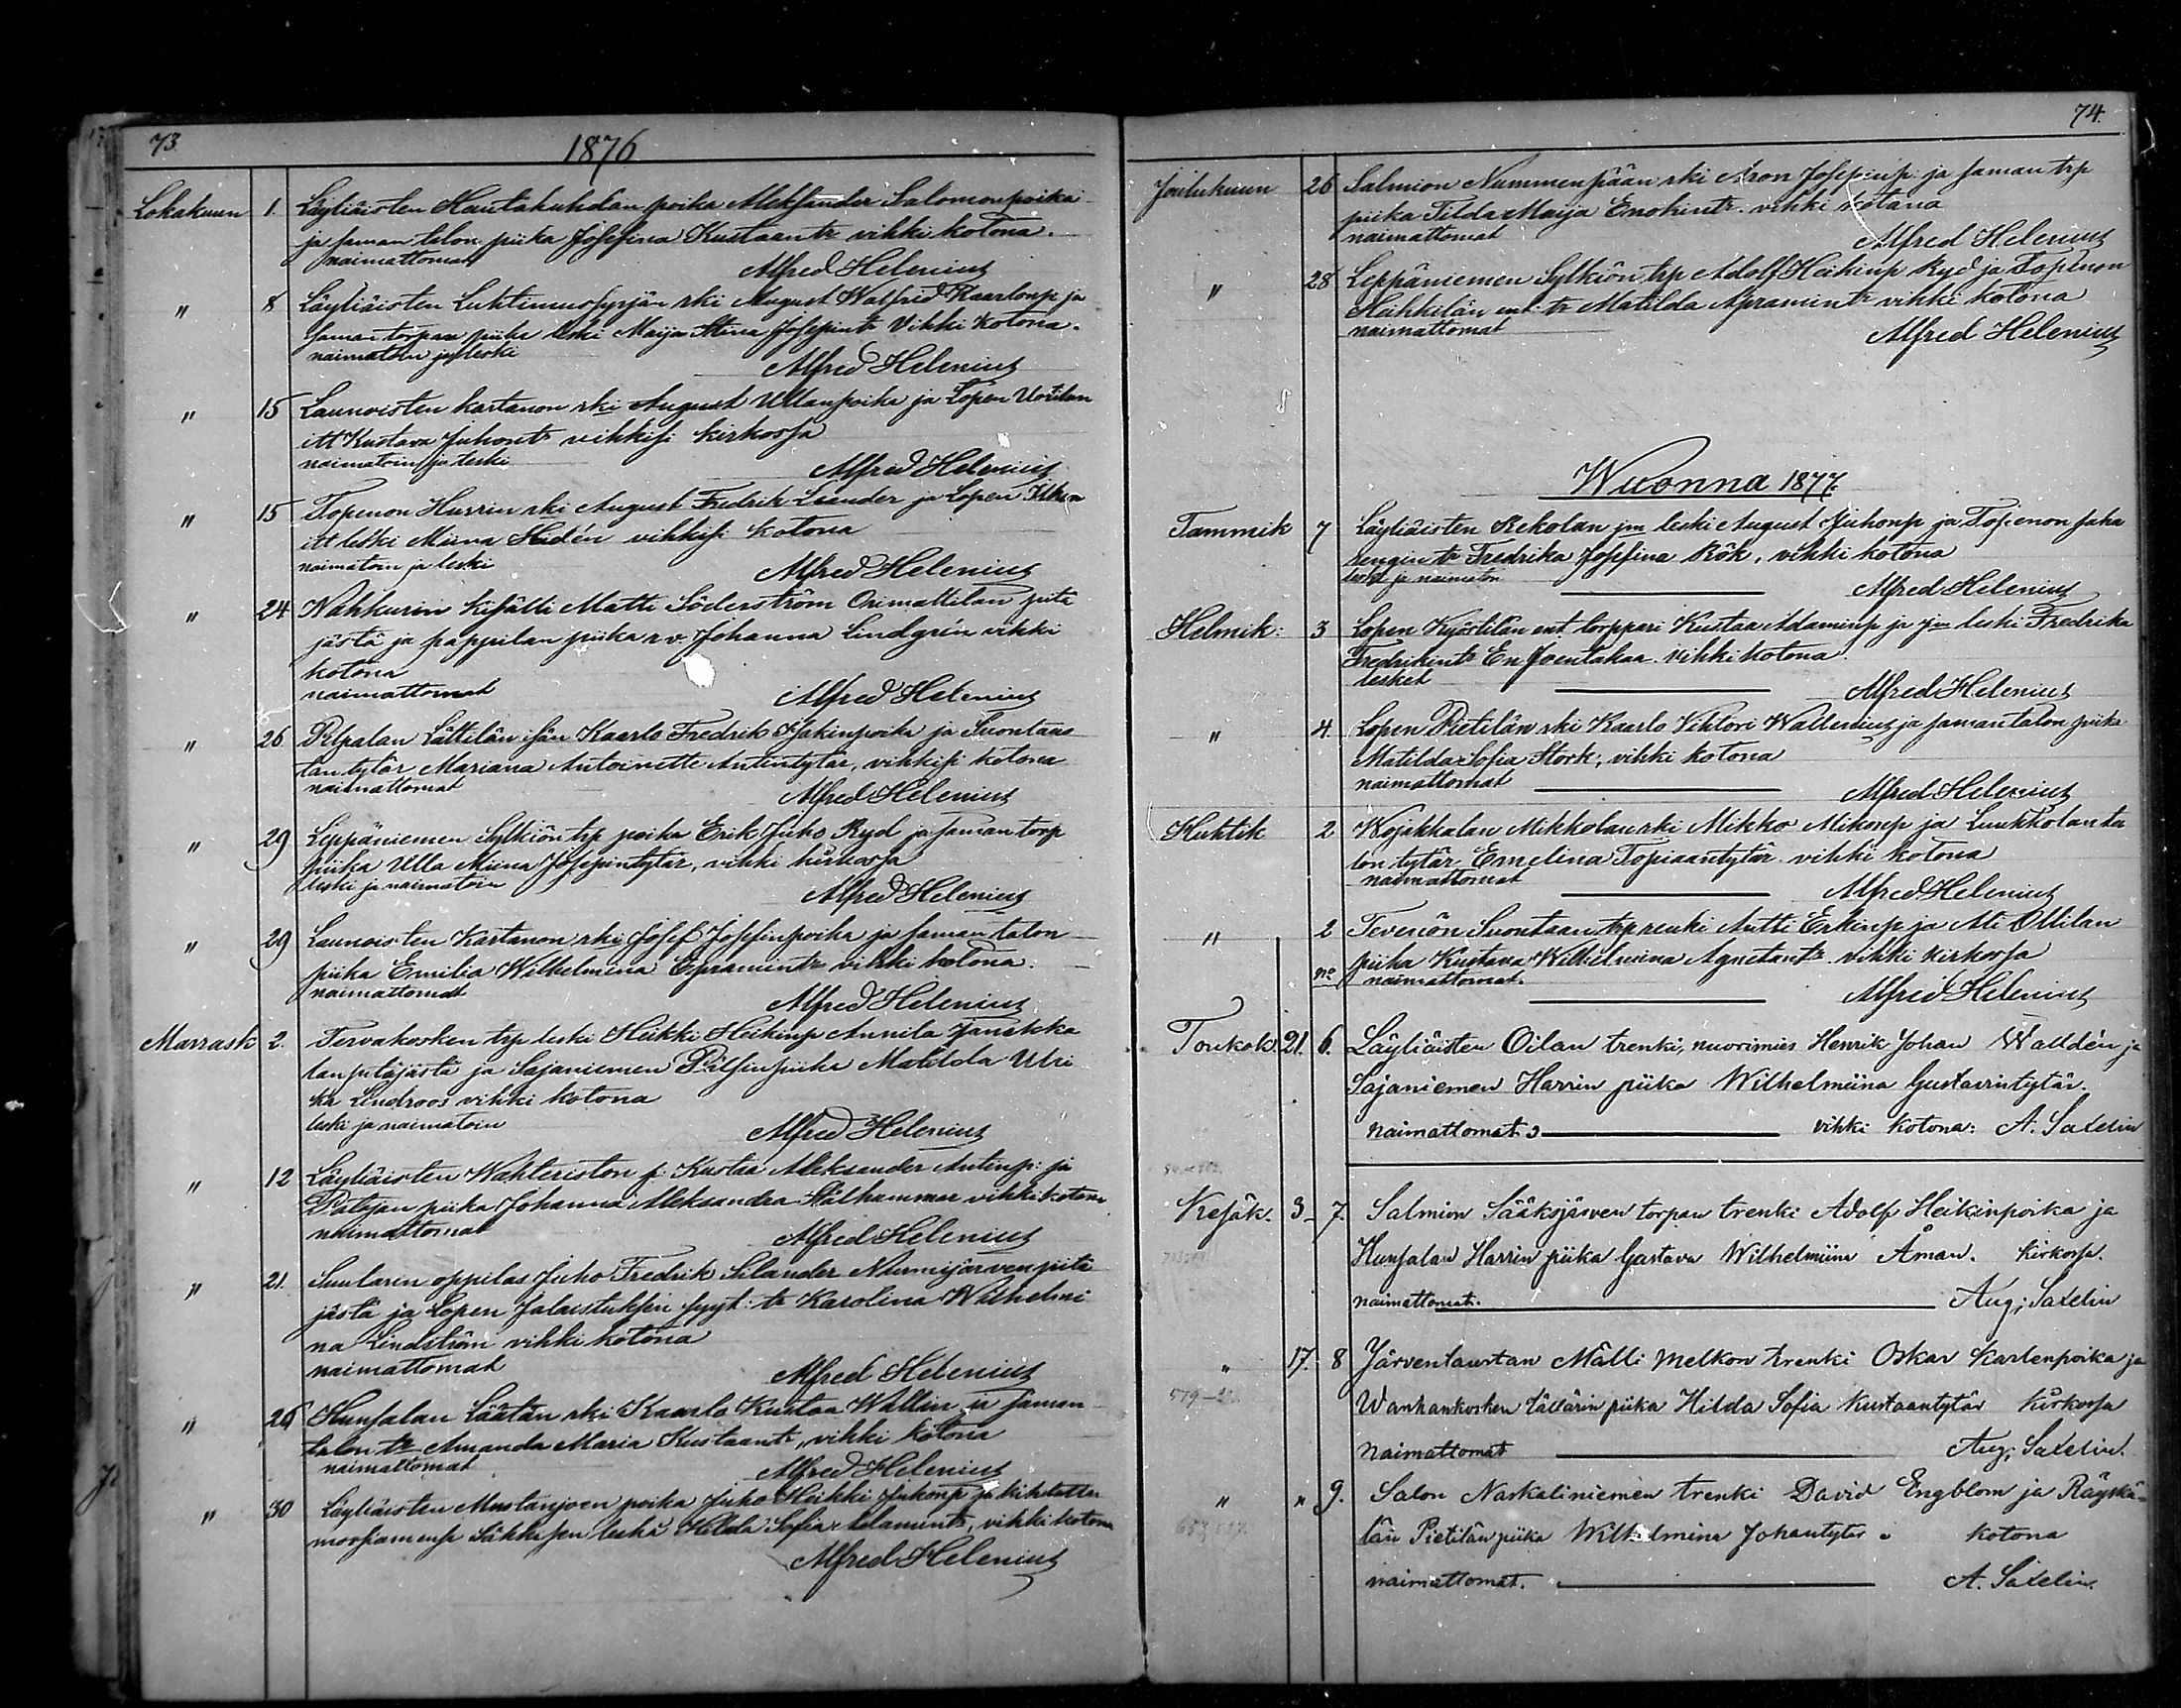 73
1876
Lokakuun 1. Läyliäisten Hautakuhdan poika Aleksander Salomonpoika
ja saman talon piika Josefina Kustaantr vihki kotona.
naimattomat
Alfred Helenius
" 8 Läyliäisten rki August Walfrid Kaarlonp ja
saman torpan piika leski Maija Stina Josepintr Vihki Kotona.
naimatoin ja leski
Alfred Helenius
" 15 Launoisten kartanon rki August Ullanpoika ja Lopen Uotilan
itt Kustava Juhontr vihkisi kirkossa
naimatoin ja leski
Alfred Helenius
" 15 Topenon Hursin rki August Fredrik Leander ja Lopen
itt leski Miina Hidén vihkisi kotona
naimatoin ja leski
Alfred Helenius
" 24 Nahkurin kisälli Matti Söderström Orimattilan pitä
jästä ja pappilan piika r.v. Johanna Lindgrén vikki
kotona
naimattomat
Alfred Helenius
" 26 Pilpalan Lättilän isän Kaarlo Fredrik Isakinpoika ja Suontaus
tan tytär Mariana Antoinette Antintytär, vihkisi kotona
naimattomat
Alfred Helenius
" 29 Leppäniemen Sytkiön trp poika Erik Juho Ryd ja saman torp
piika Ulla Miina Josepintytär, vihki kirkossa
leski ja naimatoin
Alfred Helenius
" 29 Launoisten Kartanon rki Josef Josefinpoika ja saman talon
piika Emilia Wilhelmina Epramintr vihki kotona.
naimattomat
Alfred Helenius
Marrask 2. Tervakosken trp leski Heikki Heikinp Annila Janakka
lan pitäjästä ja Sajaniemen piika Matilda Ulri
ka Lindroos vihki kotona
leski ja naimatoin
Alfred Helenius
" 12 Läyliäisten Wahteriston p. Kustaa Aleksander Antinp: ja
piika Johanna Aleksandra Stålhammar vihki kotona
naimattomat
Alfred Helenius
" 21. Suularin oppilas Juho Fredrik Silander Nurmijärven pitä
jästä ja Lopen tr Karolina Wilhelmi
na Lindström vihki kotona
naimattomat
Alfred Helenius
" 26 Hunsalan Läätän rki Kaarlo Kustaa Wallin ja saman
talon tr Amanda Maria Kustaantr, vihki kotona
naimattomat
Alfred Helenius
" 30 Läyliäisten Mustanjoen poika Juho Heikki Juhonp ja kihlattu
morsiamensa leski Hilda Sofia Adamintr, vihki kotona
Alfred Helenius
74.
Joulukuun 26 Salmion Nummenpään rki Aron Josepinp: ja saman trp
piika Tilda Maija Enokintr. vihki kotona
naimattomat
Alfred Helenius
" 28 Leppäniemen Sytkiön trp Adolf Heikinp Ryd ja Topenon
Heikkilän ent: tr Matilda Apramintr vihki kotona
naimattomat
Alfred Helenius
Wuonna 1877.
Tammik 7 Läyliäisten Rekolan jm leski August Juhonp ja Topenon saha
rengin tr Fredrika Josefina Rök, vihki kotona
leski ja naimaton
Alfred Helenius
Helmik: 3 Lopen Kyöstilän ent torppari Kustaa Adaminp ja jm leski Fredrika
Fredrikintr En Joentakaa vihki kotona.
lesket
Alfred Helenius
" 4 Lopen Pietilän rki Kaarlo Viktori Wallenius ja saman talon piika
Matilda Sofia Stork, vihki kotona
naimattomat
Alfred Helenius
Huhtik 2 Wojakkalan Mikkolan rki Mikko Mikonp ja Luukkolan ta
lon tytär Emelina Topiaantytär vihki kotona
naimattomat
Alfred Helenius
" 2 Tevenön Suontaan trp renki Antti Erkinp ja Ali Ollilan
piika Kustava Wilhelmiina Agnetantr. vihki kirkossa
no naimattomat.
Alfred Helenius
Toukok. 21. 6. Läyliäisten Oilan trenki, nuorimies Henrik Johan Walldén ja
Sajaniemen Harrin piika Wilhelmiina Gustavintytär.
naimattomat. vihki kotona: A. Saxelin
Kesäk. 3 7. Salmion Sääksjärven torpan trenki Adolf Heikinpoika ja
Hunsalan Harrin piika Gustava Wilhelmiina Åman. kirkossa.
naimattomat. Aug; Saxelin
" 17. 8 Järventaustan Mälli Melkon trenki Oskar Karlenpoika ja
Wanhankosken Lällärin piika Hilda Sofia Kustaantytär kirkossa
579
naimattomat Aug; Saxelin.
" " 9. Salon Naskaliniemen trenki David Engblom ja Räyskä-
län Pietilän piika Wilhelmina Johantytär kotona
naimattomat. A. Saxelin.